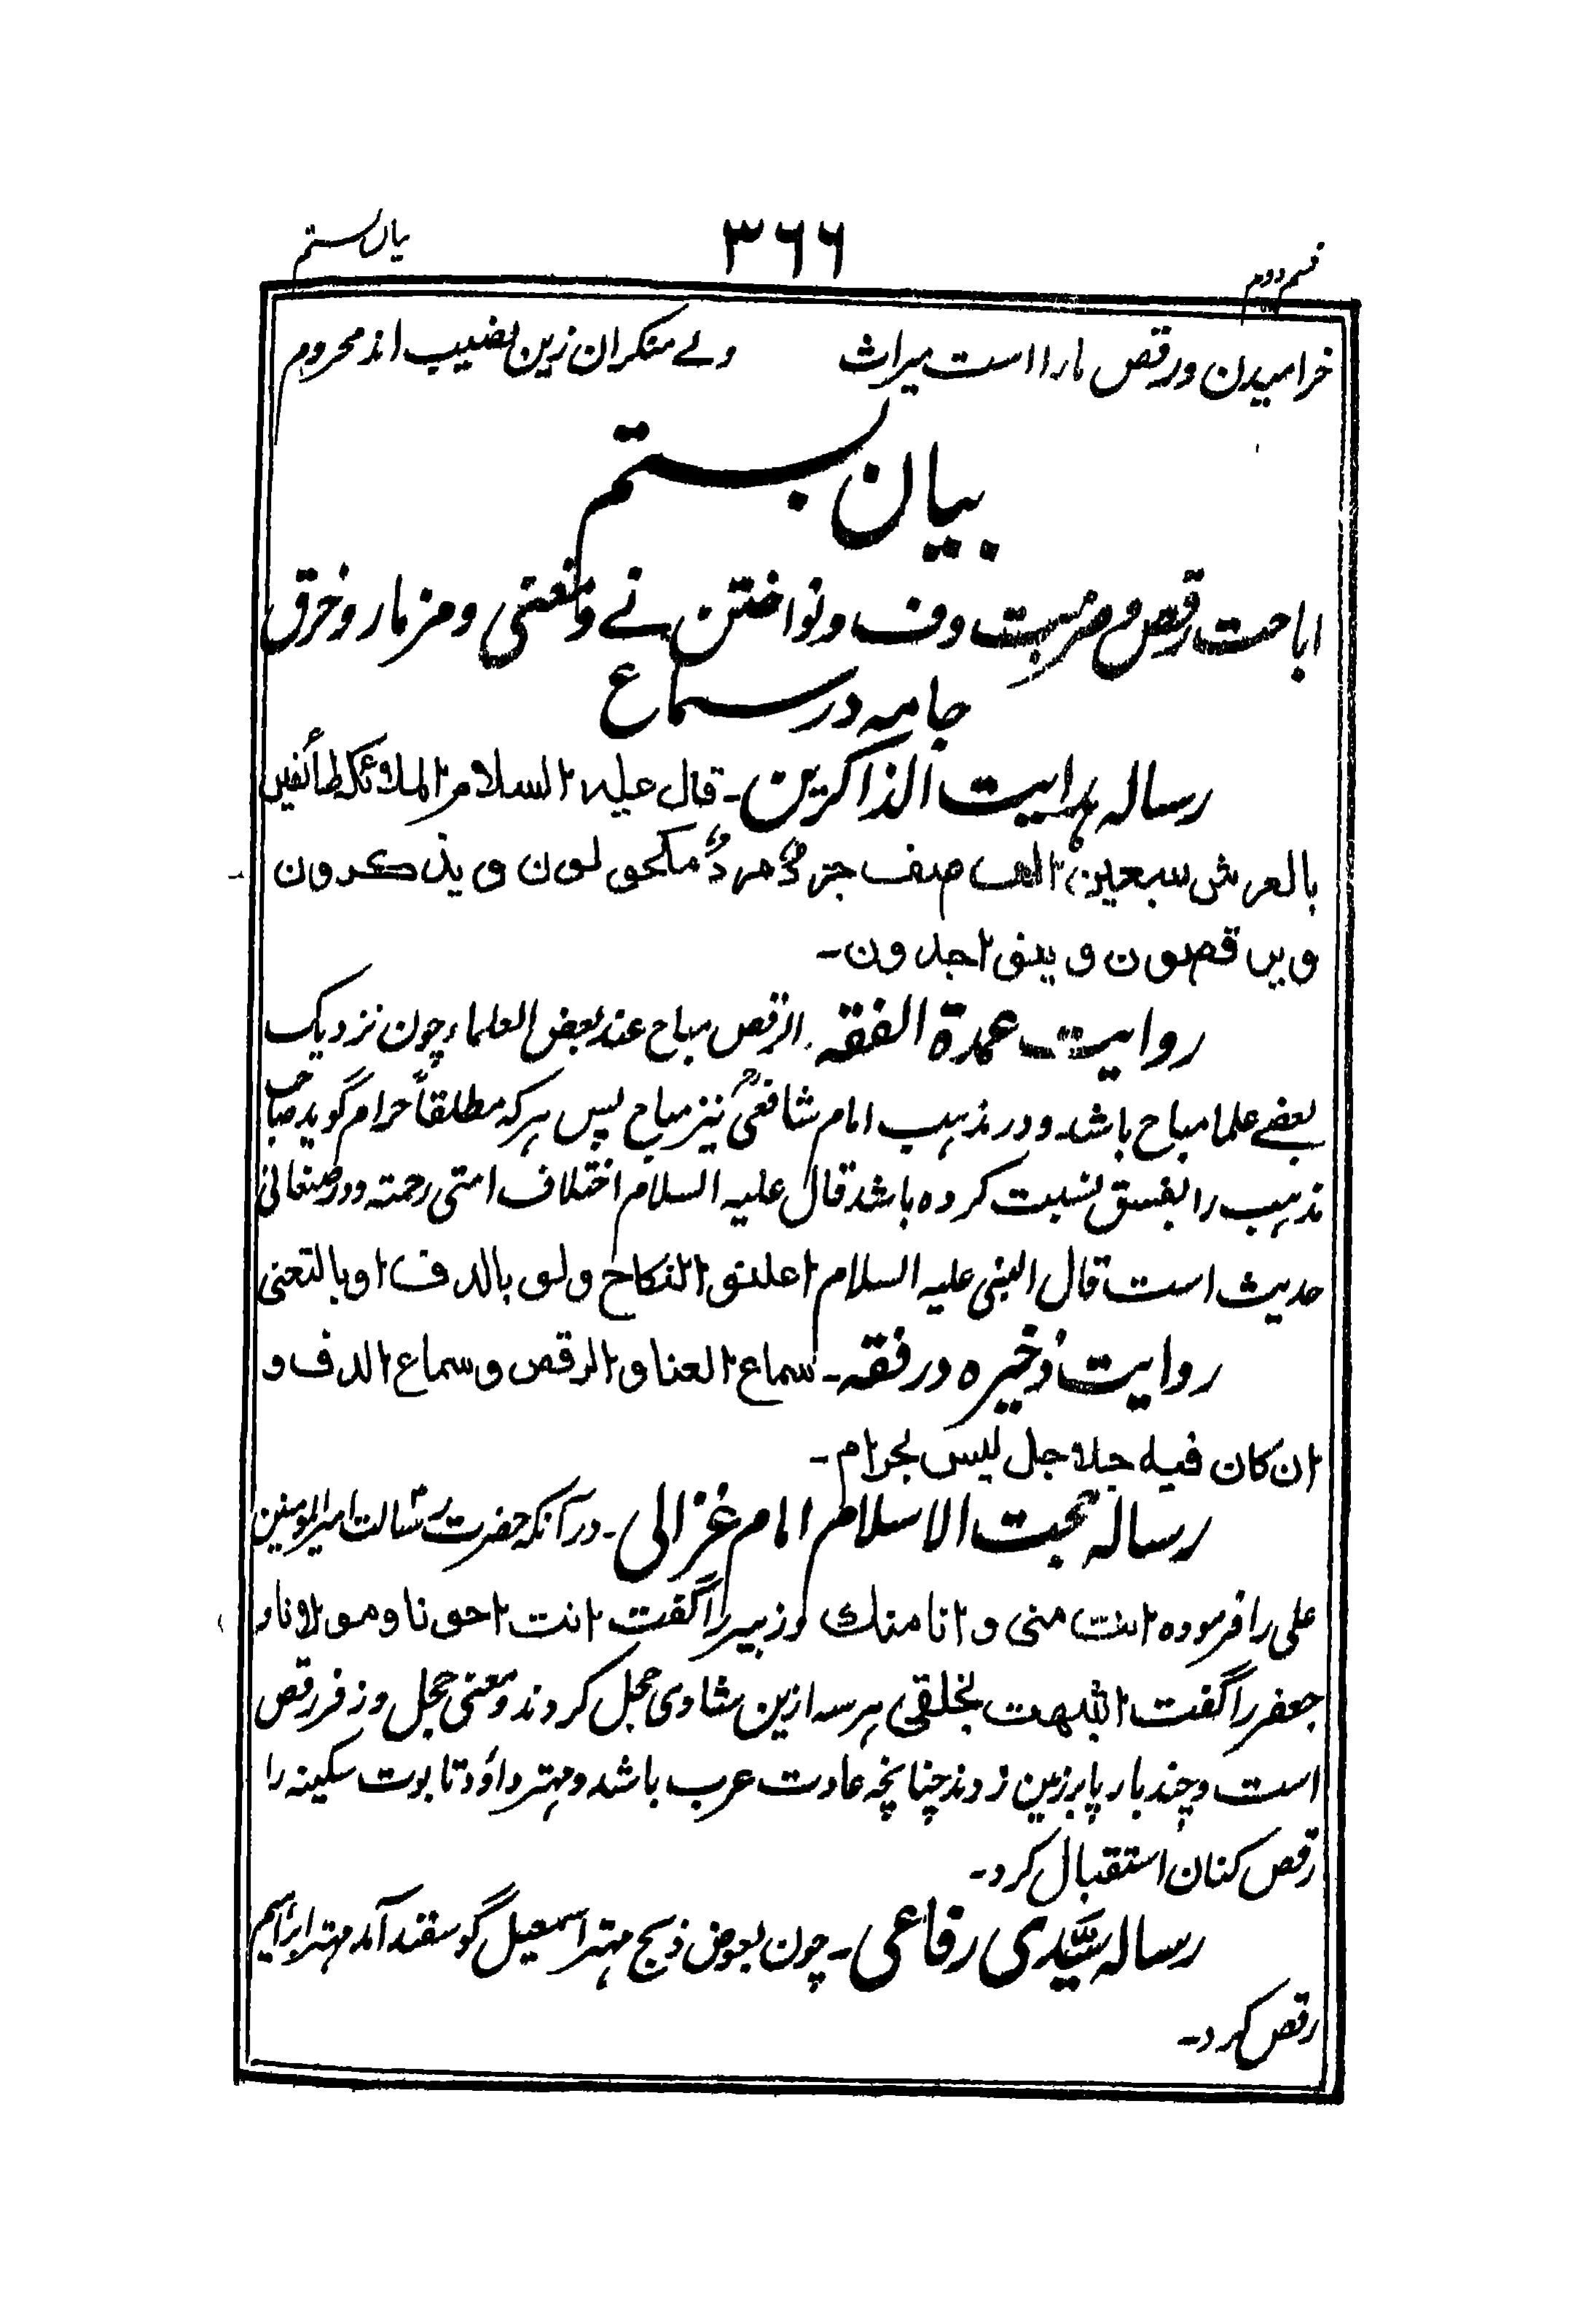 قسم دویم ۳۶۶ بیان بستم
خرامیدن و رقص مارا است میراث ولے منکران زین نصیب اند محروم
بیان بستم
اباحت رقص و ضربت دف و نواختن نے و تغنی و مزمار و خرق
جامہ در سماع
رسالہ ہدایت الذاکرین۔ قال علیہ السلام الملائکۃ طائفین
بالعرش سبعین الف صف جردٌ مردٌ مکحولون و یذکرون
ویرقصون و یتواجدون۔
روایت عمدۃ الفقہ۔ الرقص مباح عند بعض العلماء چون نزدیک
بعضے علما مباح باشد و در مذہب امام شافعیؒ نیز مباح پس ہرکہ مطلقاً حرام گوید صاحب
مذہب را بفسق نسبت کردہ باشد قال علیہ السلام اختلاف امتی رحمتہ و در صنعانی
حدیث است قال النبی علیہ السلام اعلنوا النکاح ولو بالدف او بالتغنی
روایت ذخیرہ در فقہ۔ سماع الغنا و الرقص و سماع الدف و
ان کان فیہ جلاجل لیس بحرام۔
رسالہ حجت الاسلام امام غزالی۔ در آنکہ حضرت رسالت امیرالمومنین
علی را فرمودہ انت منی و انا منک و زبیر را گفت انت اخونا و مولانا و
جعفر را گفت اشبہت بخلقی ہر سہ ازین شادی حجل کردند و معنی حجل و زفر رقص
است و چند بار پا بر زمین زدند چنانچہ عادت عرب باشد و مہتر داؤد تابوت سکینہ را
رقص کنان استقبال کرد۔
رسالہ سیّدی رفاعی۔ چون بعوض ذبح مہتر اسمعیل گوسفند آمد مہتر ابراہیم
رقص کرد۔